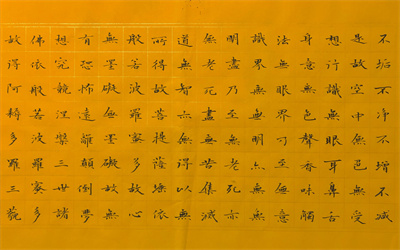 不垢不淨不增不減
是故空中無色無受
想行識無眼耳鼻舌
身意無色聲香味觸
法無眼界乃至無意
識界無無明亦無無
明盡乃至無老死亦
無老死盡無苦集滅
道無智亦無得以無
所得故菩提薩埵依
般若波羅蜜多故心
無罣礙無罣礙故無
有恐怖遠離顛倒夢
想究竟涅槃三世諸
佛依般若波羅蜜多
故得阿耨多羅三藐